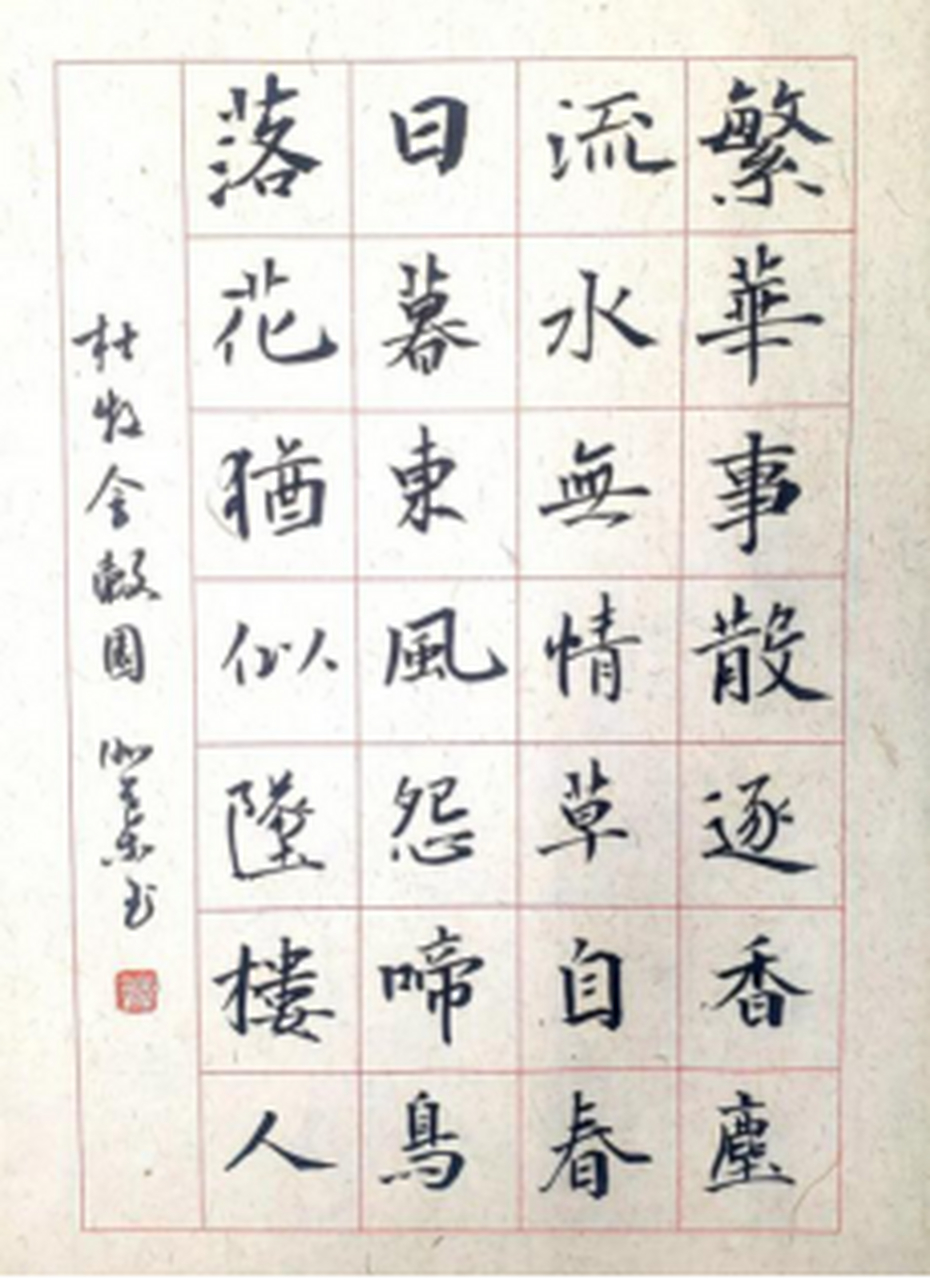 繁華事散逐香塵
流水無情草自春
日暮東風怨啼鳥
落花猶似墜樓人
杜牧金穀園 書